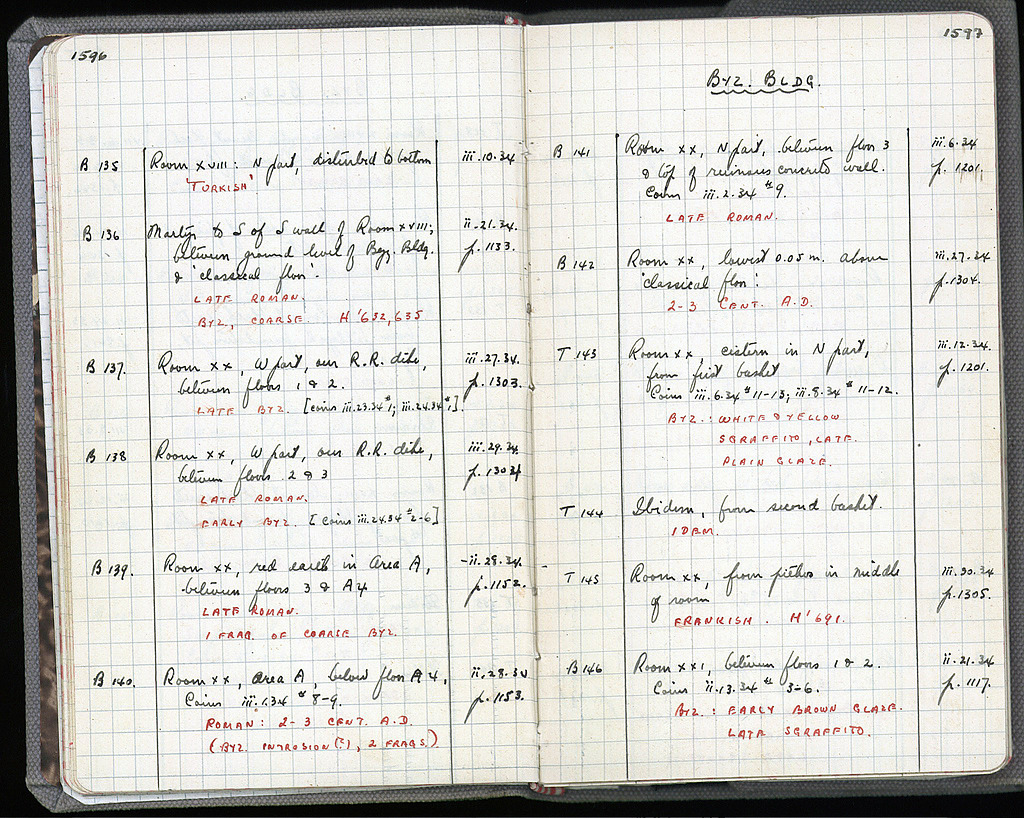 1596
B 135 Room XVIII: N part, disturbed to bottom iii.10.34
'TURKISH'
B 136 Martyr to S of S wall of Room XVIII; ii.21.34.
between ground level of Byz. Bldg. p. 1133.
& 'classical floor'.
LATE ROMAN.
BYZ., COARSE. H'632,635
B 137. Room XX, W part, our R.R. dike, iii.27.34.
between floors 1 & 2. p. 1303.
LATE BYZ. [coins iii.23.34 #1; iii.24.34 #1].
B 138 Room XX, W part, our R.R. dike, iii.29.34.
between floors 2 & 3 p. 1304
LATE ROMAN.
EARLY BYZ. [Coins iii.24.34 #2-6]
B 139. Room XX, red earth in Area A, ii.28.34.
between floors 3 & A4 p. 1152.
LATE ROMAN.
1 FRAG. OF COARSE BYZ.
B 140. Room XX, Area A, below floor A4, ii.28.34
Coins iii.1.34 # 8-9. p. 1153.
ROMAN: 2-3 CENT. A.D.
(BYZ. INTRUSION(?), 2 FRAGS.)
1597
BYZ. BLDG.
B 141 Room XX, N part, between floor 3 iii.6.34
& top of ruinous concrete wall. p. 1201.
Coins iii.2.34 #9.
LATE ROMAN.
B 142 Room XX, lowest 0.05 m. above iii.27.24
'classical floor'. p. 1304.
2-3 CENT. A.D.
T 143 Room XX, cistern in N part, iii.12.34.
from first basket p. 1201.
Coins iii.6.34 # 11-13; iii.8.34 # 11-12.
BYZ.: WHITE & YELLOW
SGRAFFITO, LATE.
PLAIN GLAZE.
T 144 Ibidem, from second basket.
IDEM.
T 145 Room XX, from pithos in middle iii.30.34
of room p. 1305.
FRANKISH. H'691.
B 146 Room XXI, between floors 1 & 2. ii.21.34
Coins ii.13.34 # 3-6. p. 1117.
BYZ.: EARLY BROWN GLAZE.
LATE SGRAFFITO.